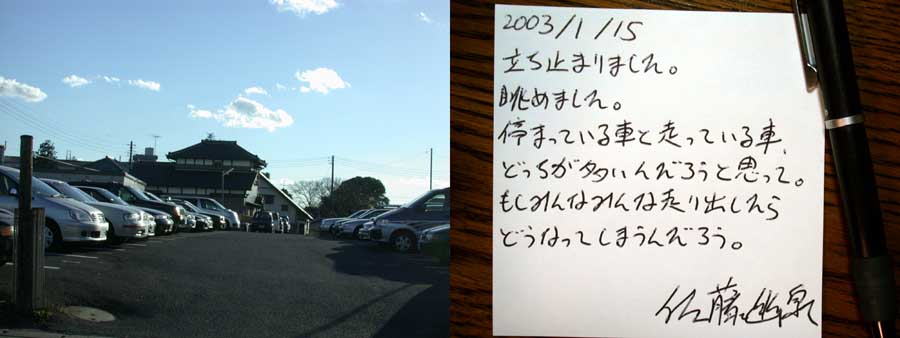 2003/1/15
立ち止まりました。
眺めました。
停まっている車と走っている車、
どっちが多いんだろうと思って。
もしみんなみんな走り出したら
どうなってしまうんだろう。
佐藤